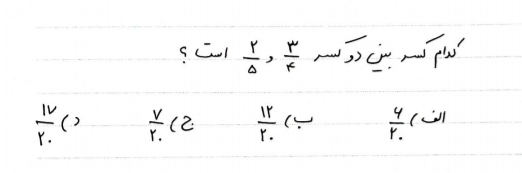 کدام کسر بین دو کسر ۳/۴ و ۲/۵ است ؟
الف) ۶/۲۰ ب) ۱۲/۲۰ ج) ۷/۲۰ د) ۱۷/۲۰